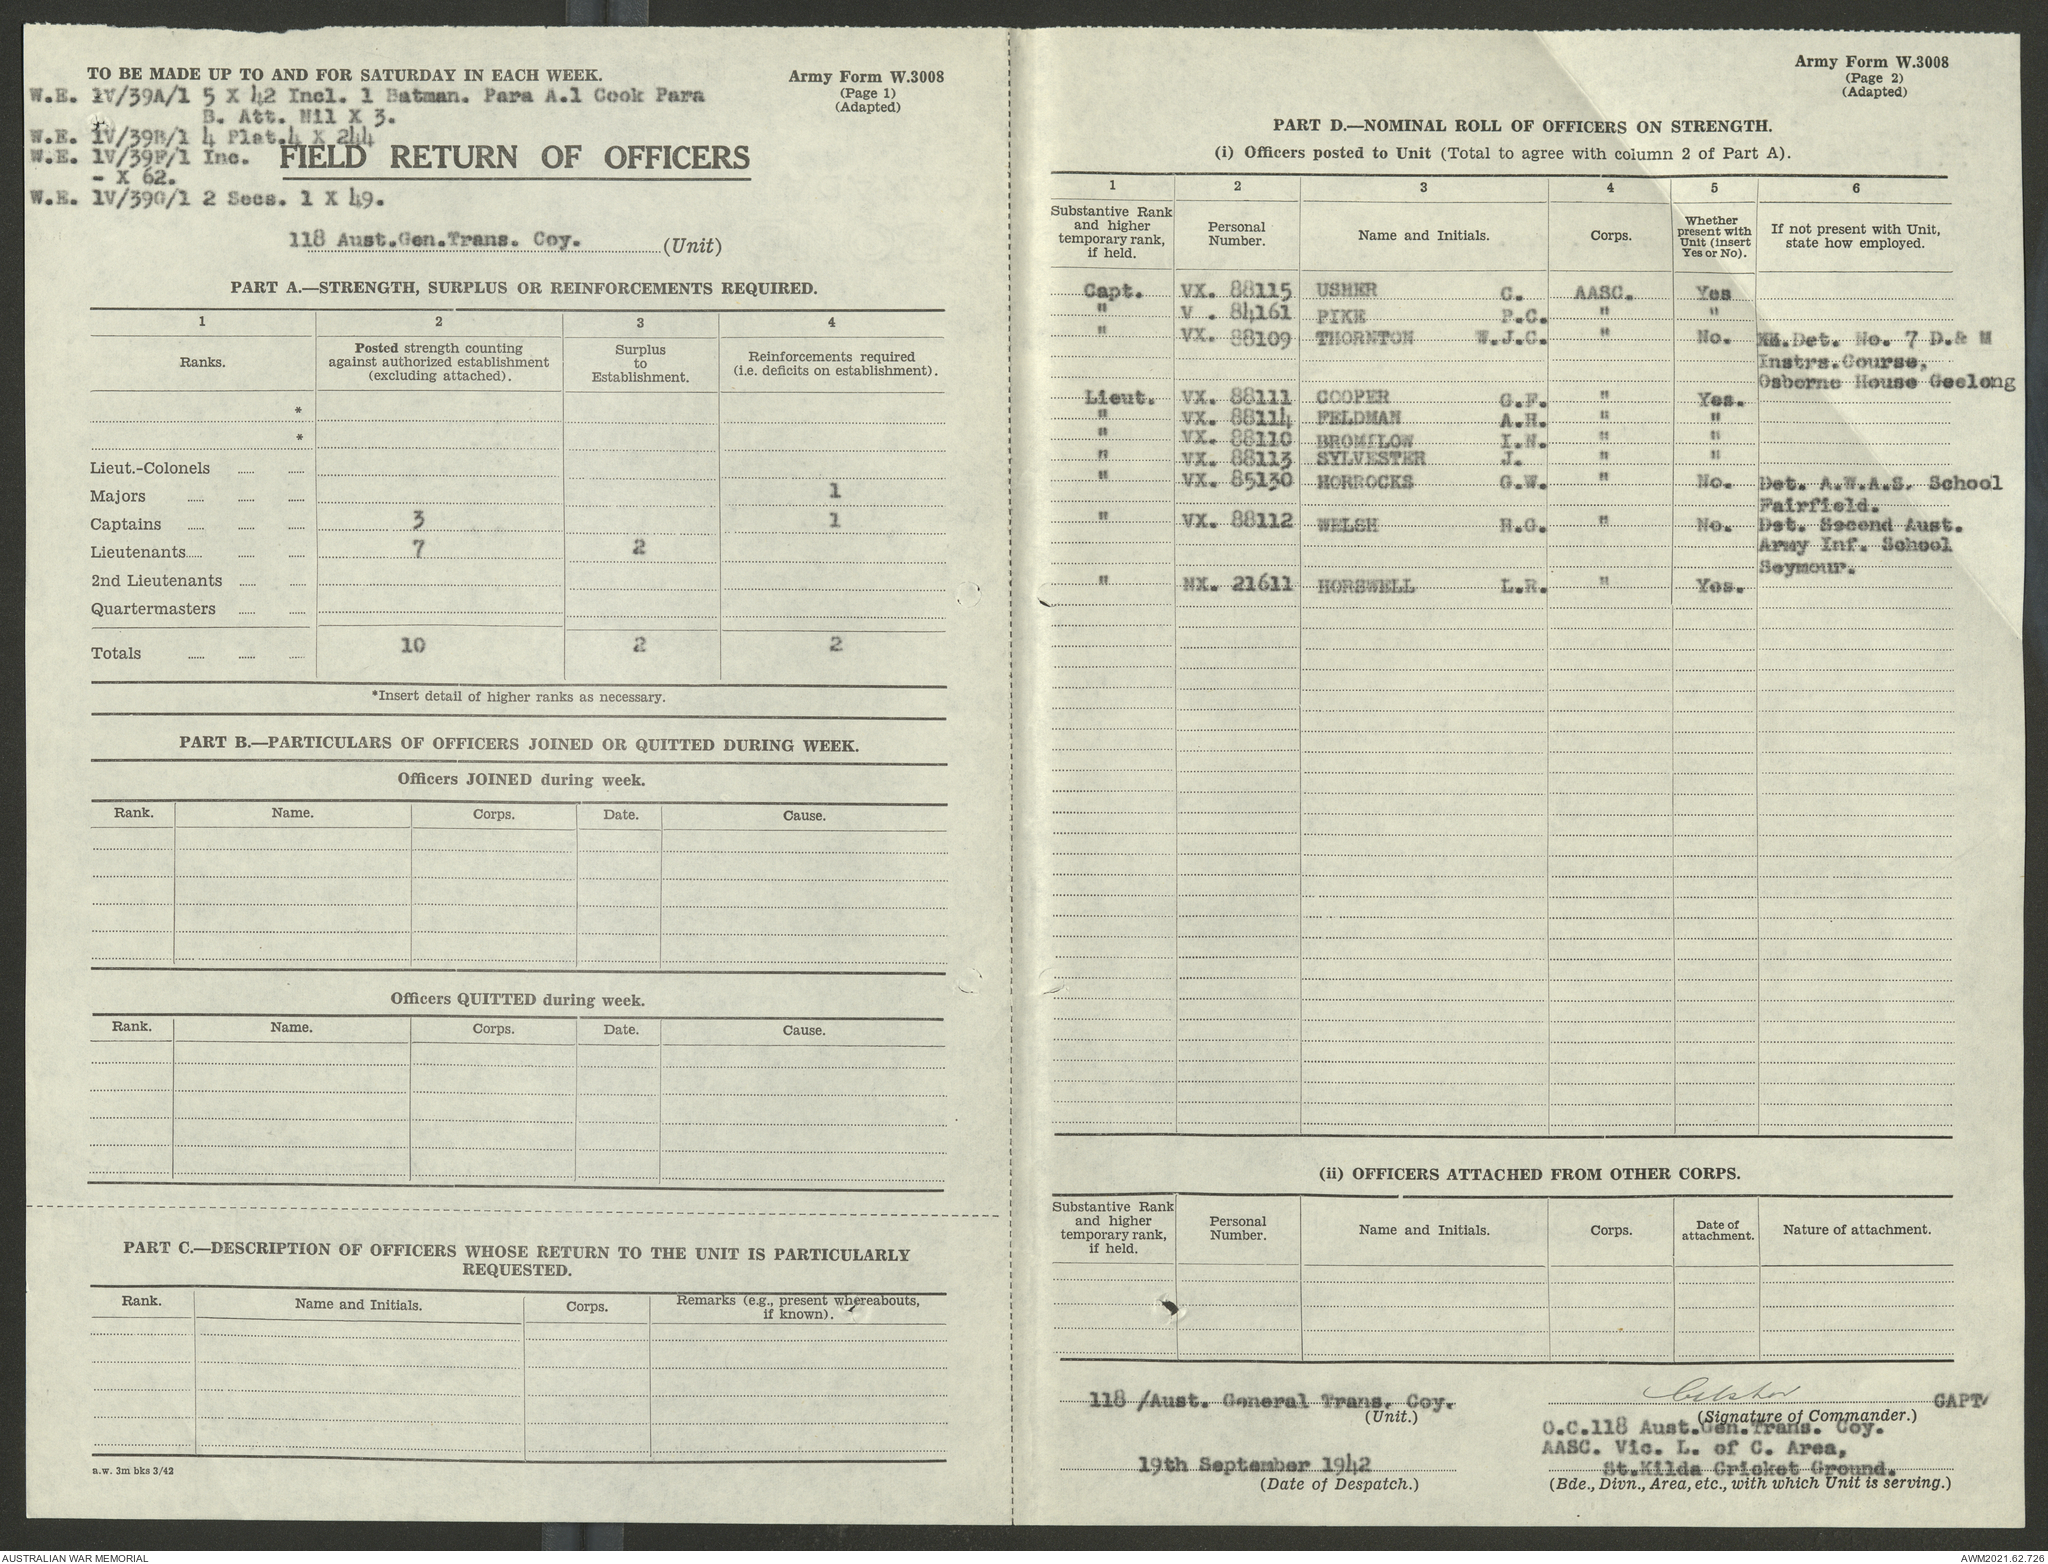 TO BE MADE UP TO AND FOR SATURDAY IN EACH WEEK.
Army Form W.3008
(Page 1)
(Adapted)
W.E. 1V/39A/1 5 X 42 Incl. 1 Batman. Para A.1 Cook Para
B. Att. Nil X 3.
W.E. 1V/39B/1 4 Plat.4 X 244
W.E. 1V/39F/1 Inc.
- X 62.
W.E. 1V/39G/1 2 Secs. 1 X 49.
FIELD RETURN OF OFFICERS
118 Aust.Gen.Trans. Coy. (Unit)
PART A.—STRENGTH, SURPLUS OR REINFORCEMENTS REQUIRED.
1 2 3 4
Ranks. Posted strength counting against authorized establishment (excluding attached). Surplus to Establishment. Reinforcements required (i.e. deficits on establishment).
*
*
Lieut.-Colonels
Majors 1
Captains 3 1
Lieutenants 7 2
2nd Lieutenants
Quartermasters
Totals 10 2 2
*Insert detail of higher ranks as necessary.
PART B.—PARTICULARS OF OFFICERS JOINED OR QUITTED DURING WEEK.
Officers JOINED during week.
Rank. Name. Corps. Date. Cause.
Officers QUITTED during week.
Rank. Name. Corps. Date. Cause.
PART C.—DESCRIPTION OF OFFICERS WHOSE RETURN TO THE UNIT IS PARTICULARLY
REQUESTED.
Rank. Name and Initials. Corps. Remarks (e.g., present whereabouts, if known).
a.w. 3m bks 3/42
Army Form W.3008
(Page 2)
(Adapted)
PART D.—NOMINAL ROLL OF OFFICERS ON STRENGTH.
(i) Officers posted to Unit (Total to agree with column 2 of Part A).
1 2 3 4 5 6
Substantive Rank and higher temporary rank, if held. Personal Number. Name and Initials. Corps. Whether present with Unit (insert Yes or No). If not present with Unit, state how employed.
Capt. VX. 88115 USHER C. AASC. Yes
" V . 84161 PIKE P.C. " "
" VX. 88109 THORNTON W.J.C. " No. Det. No. 7 D.& M
Instrs.Course,
Osborne House Geelong
Lieut. VX. 88111 COOPER G.F. " Yes.
" VX. 88114 FELDMAN A.H. " "
" VX. 88110 BROMILOW I.N. " "
" VX. 88113 SYLVESTER J. " "
" VX. 85130 HORROCKS G.W. " No. Det. A.W.A.S. School
Fairfield.
" VX. 88112 WELSH H.G. " No. Det. Second Aust.
Army Inf. School
Seymour.
" NX. 21611 HORSWELL L.R. " Yes.
(ii) OFFICERS ATTACHED FROM OTHER CORPS.
Substantive Rank and higher temporary rank, if held. Personal Number. Name and Initials. Corps. Date of attachment. Nature of attachment.
118 /Aust. General Trans. Coy.
(Unit.)
CUsher CAPT/
(Signature of Commander.)
O.C.118 Aust.Gen.Trans. Coy.
AASC. Vic. L. of C. Area,
St.Kilda Cricket Ground.
19th September 1942
(Date of Despatch.)
(Bde., Divn., Area, etc., with which Unit is serving.)
AUSTRALIAN WAR MEMORIAL
AWM2021.62.726